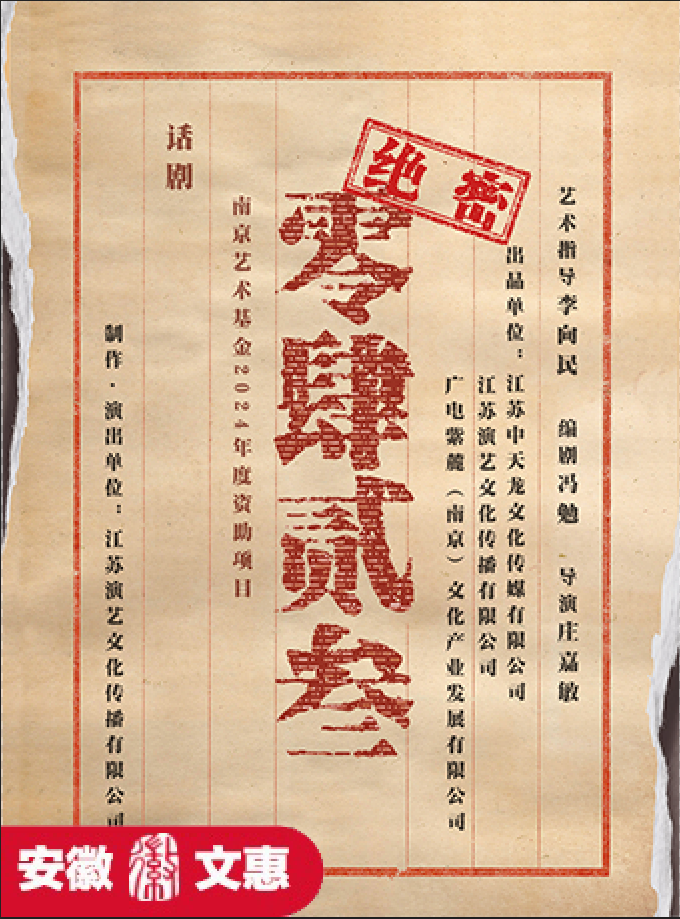 绝密
艺术指导李向民 编剧冯勉 导演庄嘉敏
出品单位：江苏中天龙文化传媒有限公司
江苏演艺文化传播有限公司
广电紫麓（南京）文化产业发展有限公司
零肆贰叁
南京艺术基金2024年度资助项目
话剧
制作·演出单位：江苏演艺文化传播有限公司
安徽 徽 文惠